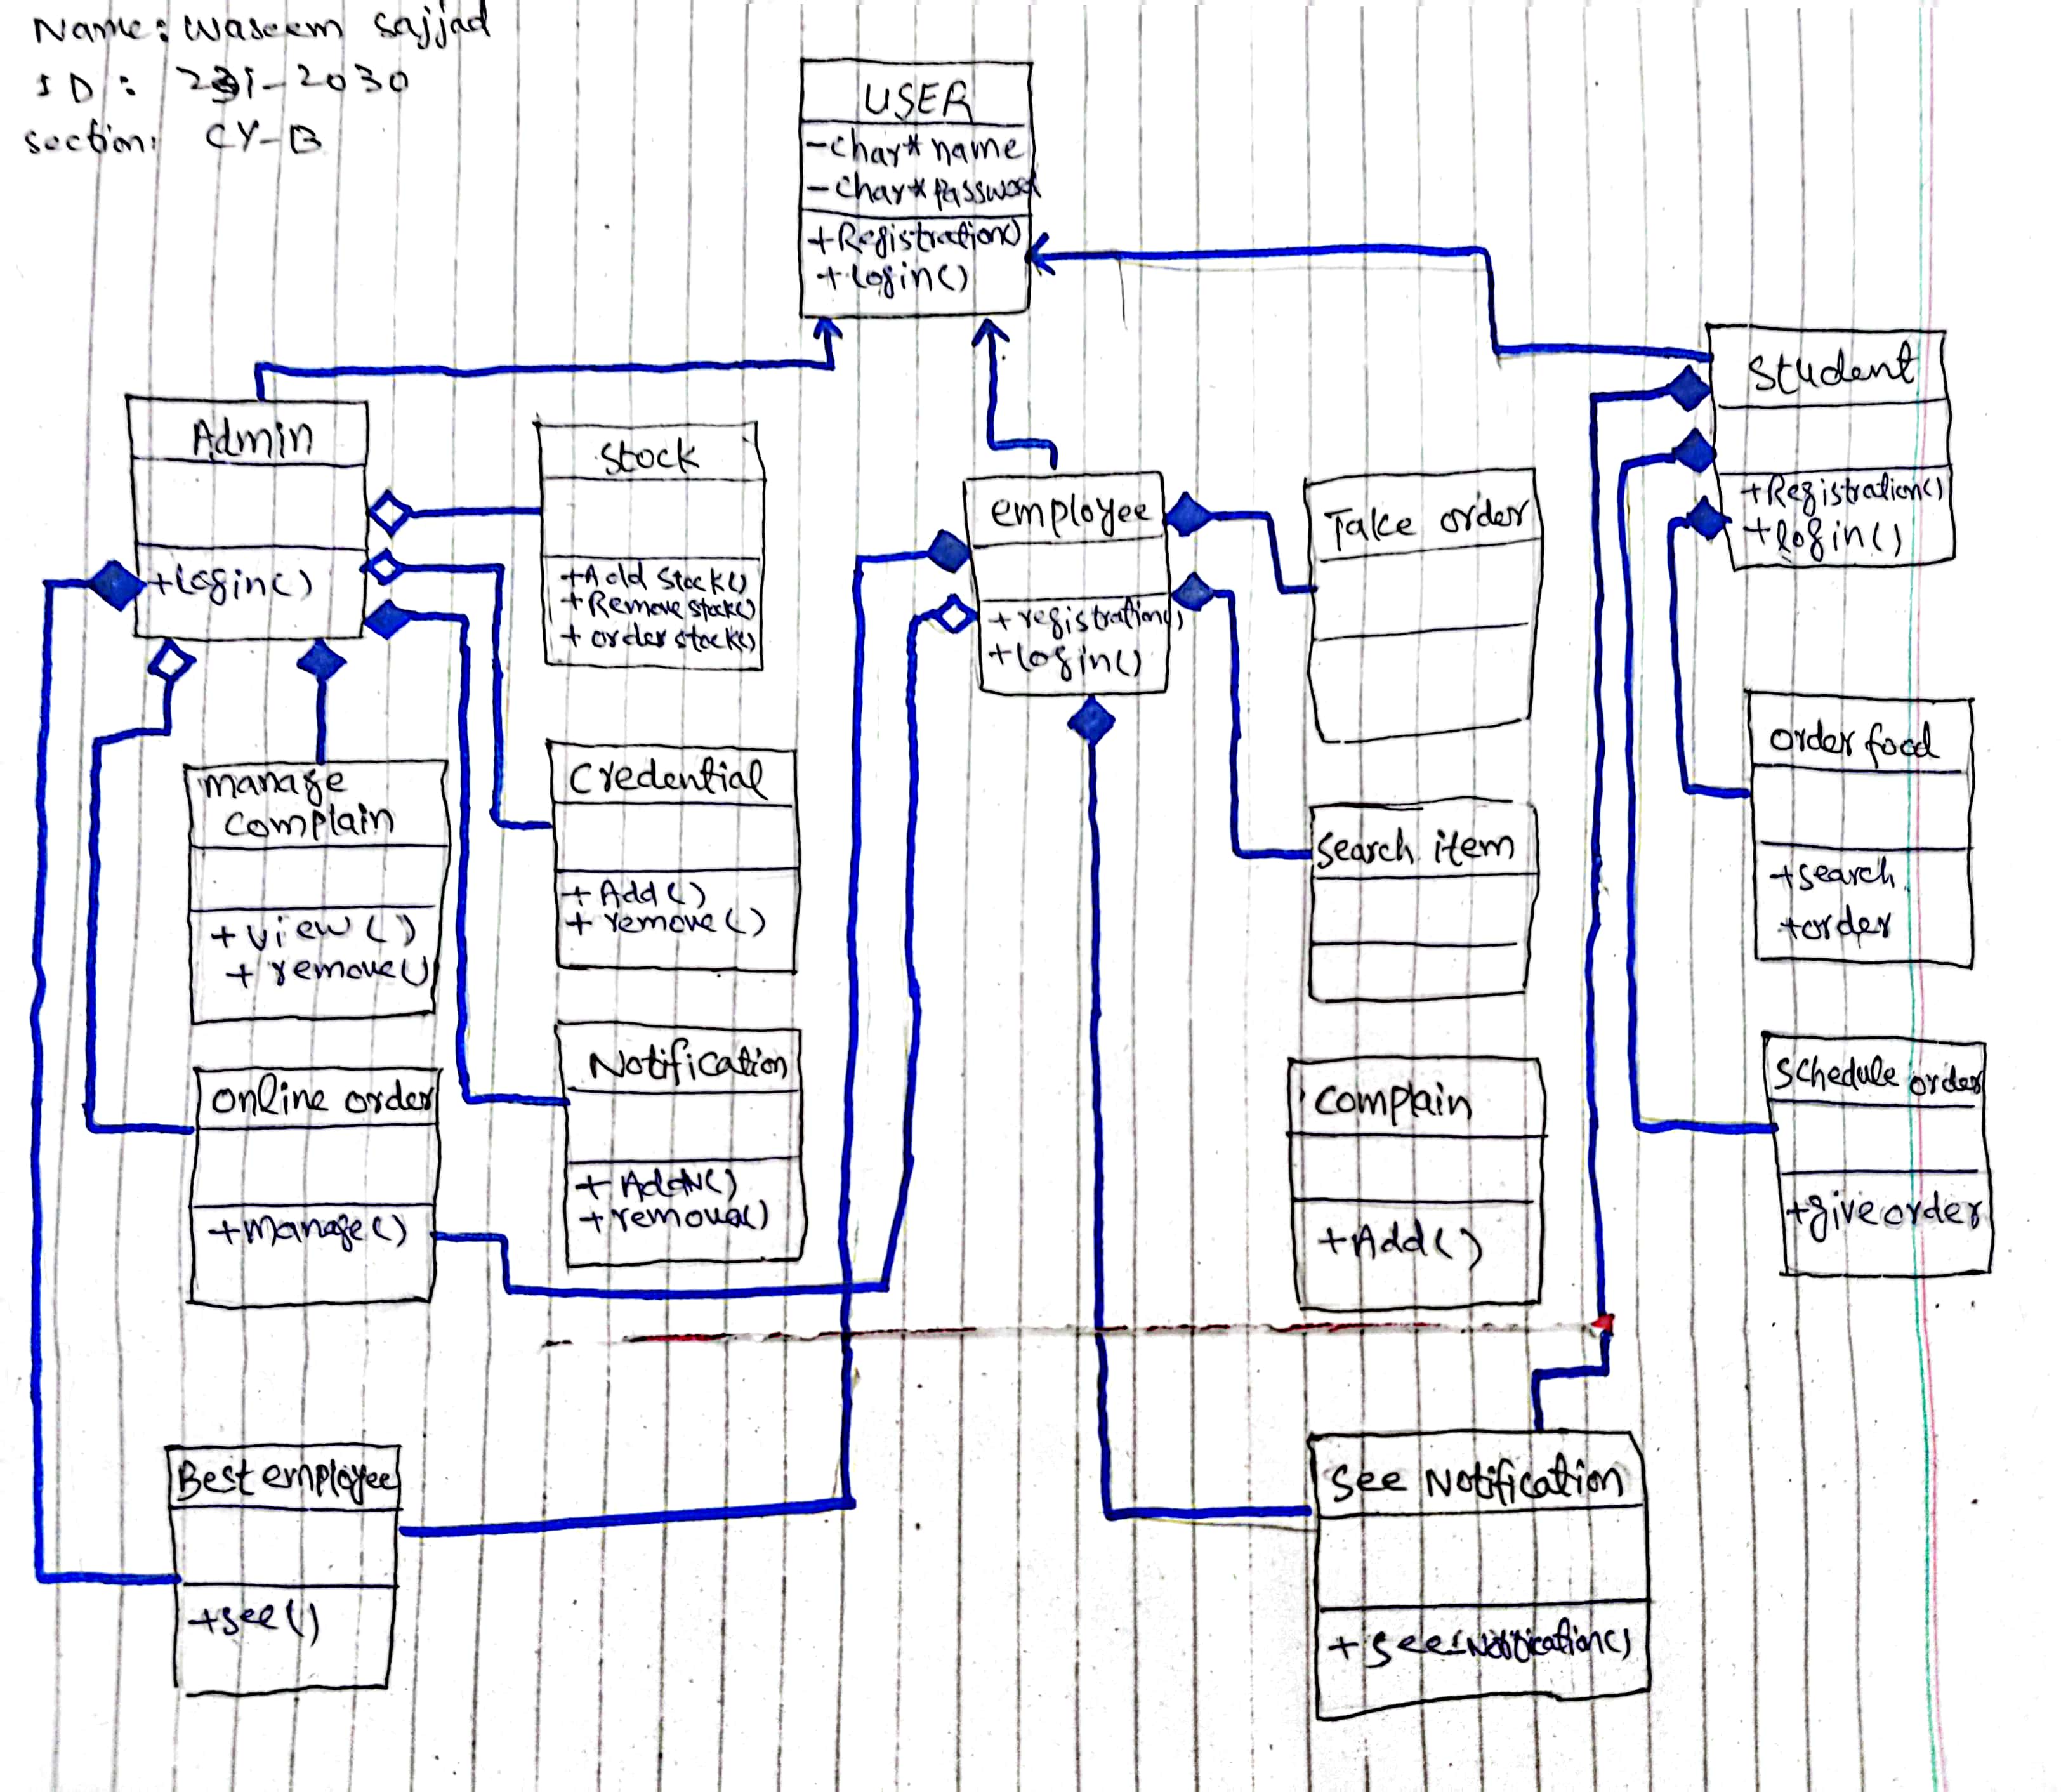 Name: Waseem Sajjad
ID: 23i-2030
Section: CY-B
USER
-char* name
-char* password
+Registration()
+login()
Student
+Registration()
+login()
Admin
+login()
Stock
+Add Stock()
+Remove stock()
+ order stock()
employee
+ registration()
+login()
Take order
manage
complain
+ view()
+ remove()
Credential
+ Add()
+ remove()
Search item
order food
+search
+order
online order
+manage()
Notification
+ AddN()
complain
+Add()
Schedule order
+give order
Best employee
+see()
See Notification
+ see Notification()